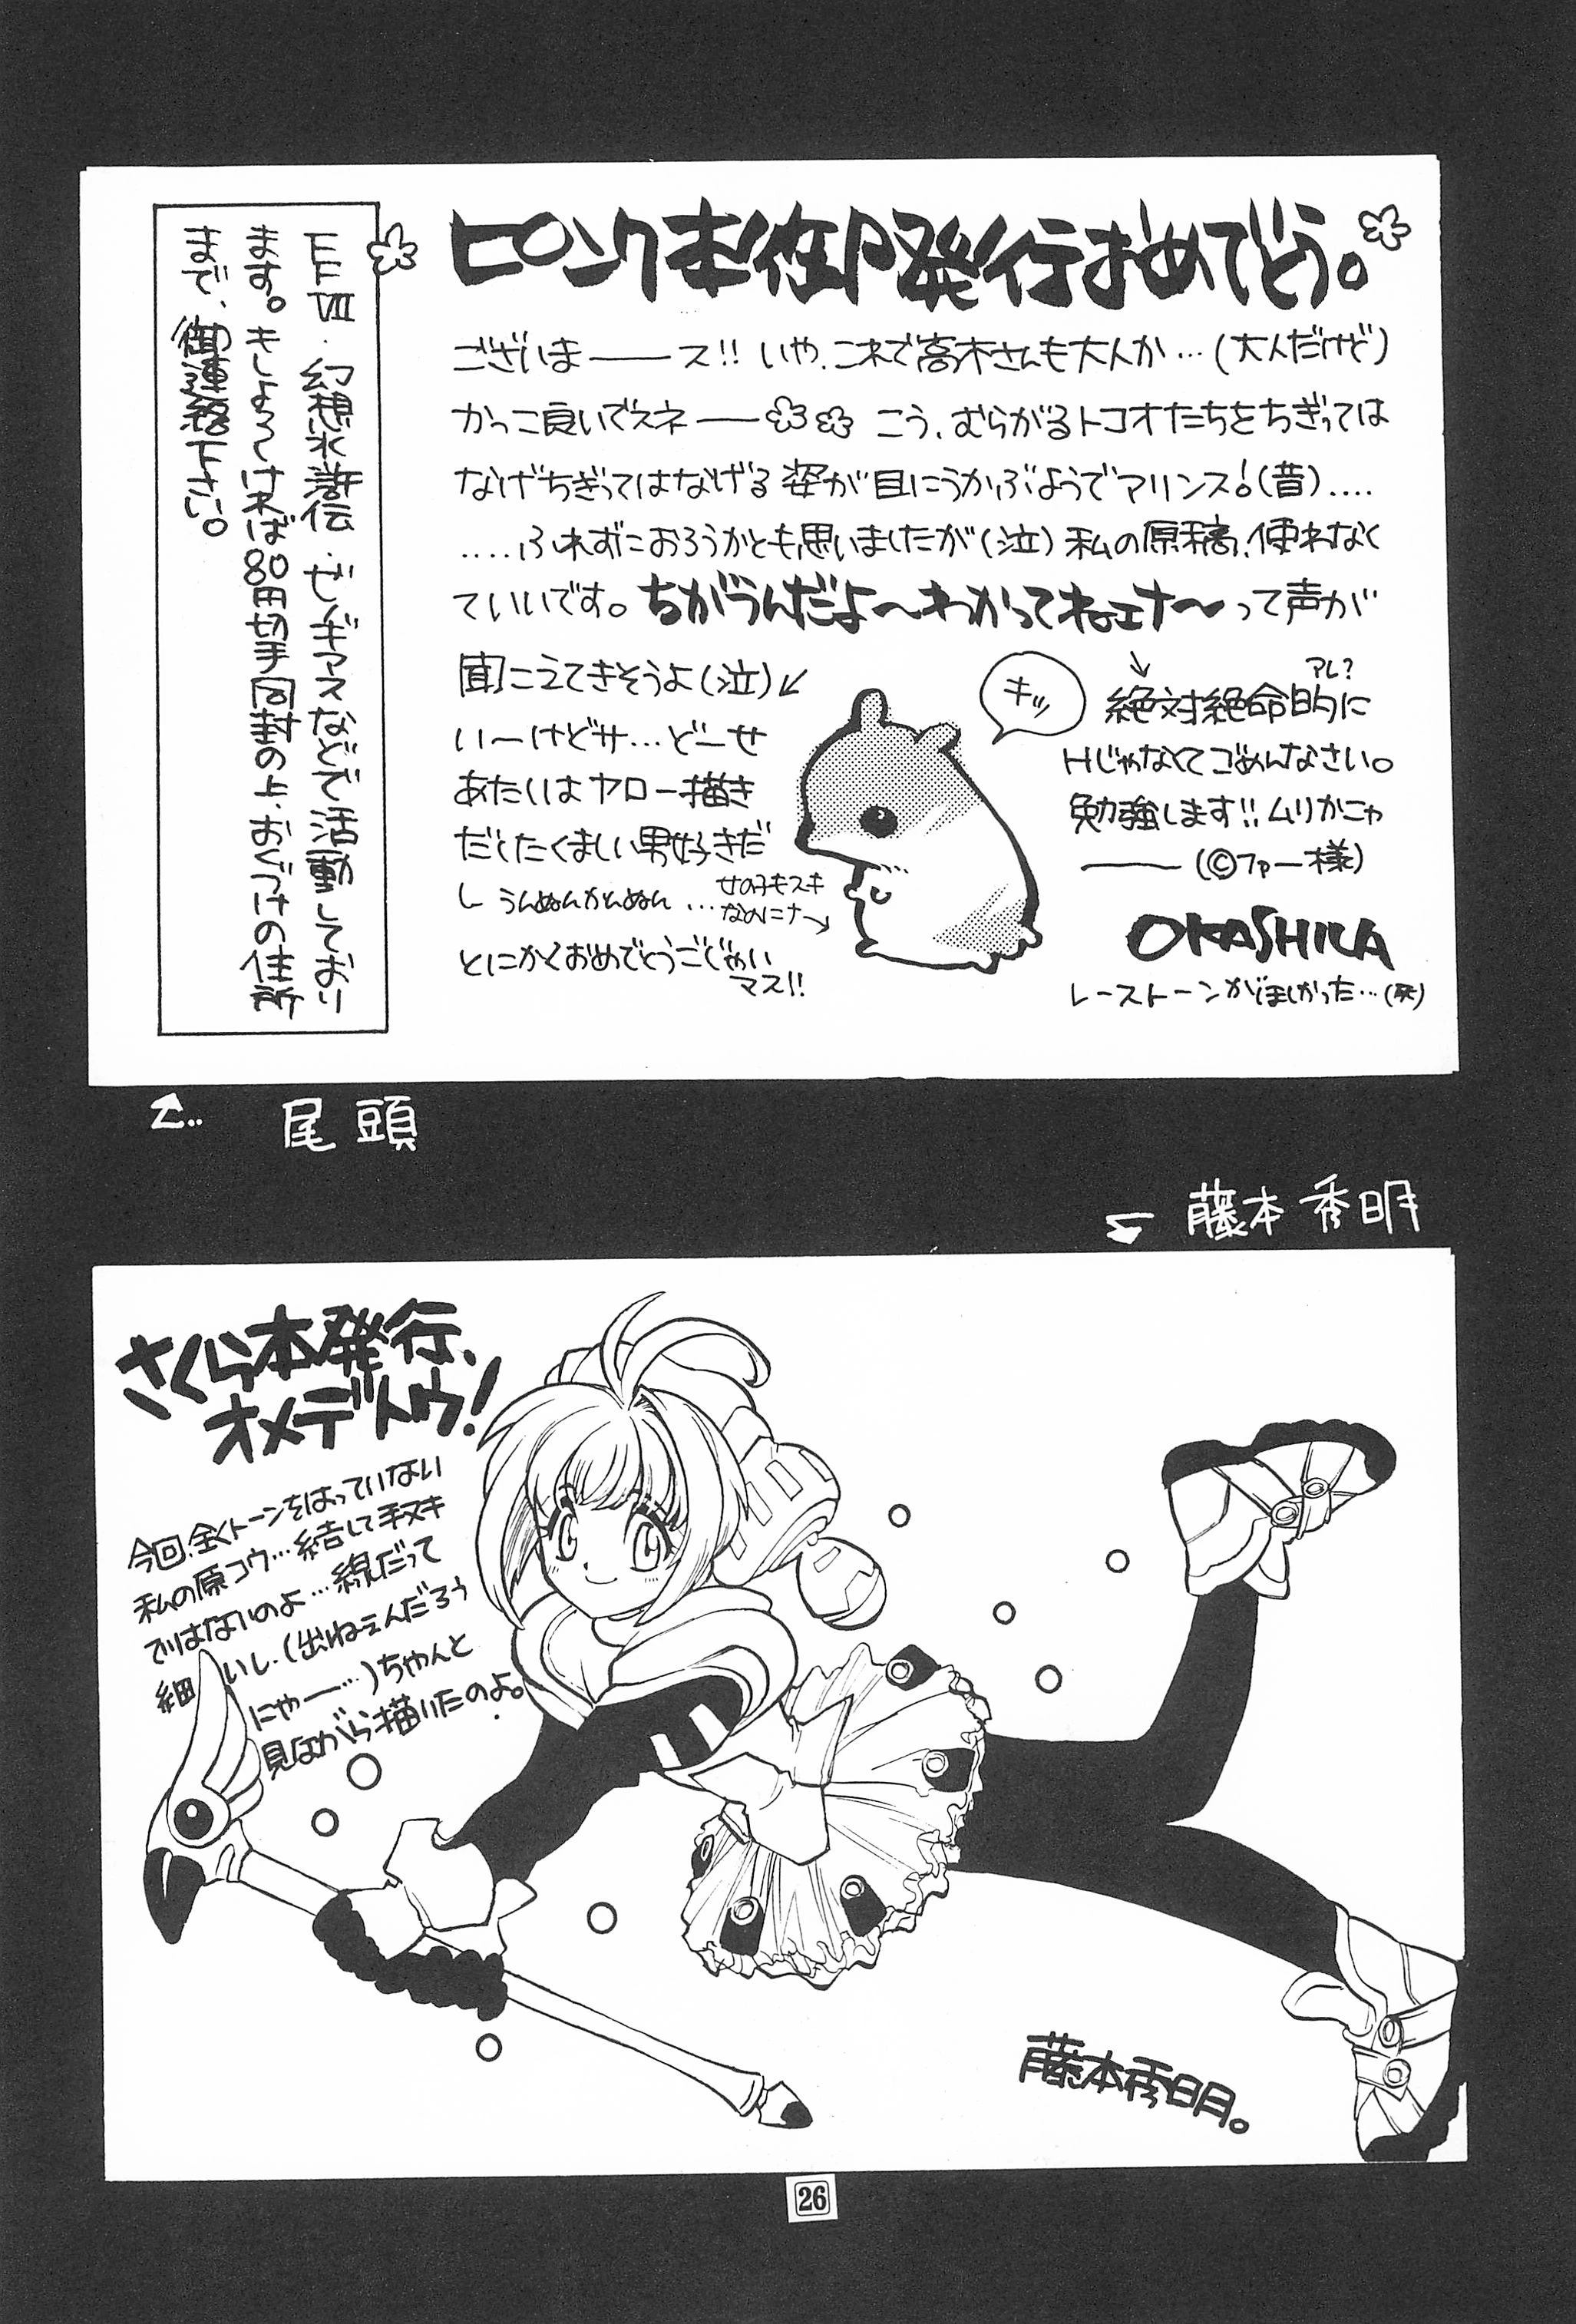 ピンク本御発行おめでとう。
ございま――ス!! いや、これで高木さんも大人か…(大人だけど)
かっこ良いでスネ―― こう、むらがるトコオたちをちぎっては
なげちぎってはなげる姿が目にうかぶようでマリンス!(昔)‥‥
‥‥ふれずにおろうかとも思いましたが(泣) 私の原稿、使わなく
ていいです。ちがうんだよ〜わかってねェナ〜って声が
聞こえてきそうよ(泣)
い〜けどサ…ど―せ
あたいはヤロー描き
だしたくましい男好きだ
し うんぬんかんぬん…
女の子もスキ
なのにナ→
とにかくおめでとうごじゃい
マス!!
キッ
アレ?
絶対絶命的に
Hじゃなくてごめんなさい。
勉強します!! ムリかニャ
――(©ファー様)
OKASHILA
レーストーンがほしかった…
FFⅦ・幻想水滸伝・ゼノギアスなどで活動しており
ます。もしよろしければ80円切手同封の上、おくづけの住所
まで、御連絡下さい。
尾頭
藤本秀明
さくら本発行、
オメデトウ!
今回、全くトーンをはっていない
私の原コウ…結して手ヌキ
ではないのよ…線だって
細いし、(出ねェんだろう
にゃ―…)ちゃんと
見ながら描いたのよ。
藤本秀明。
26